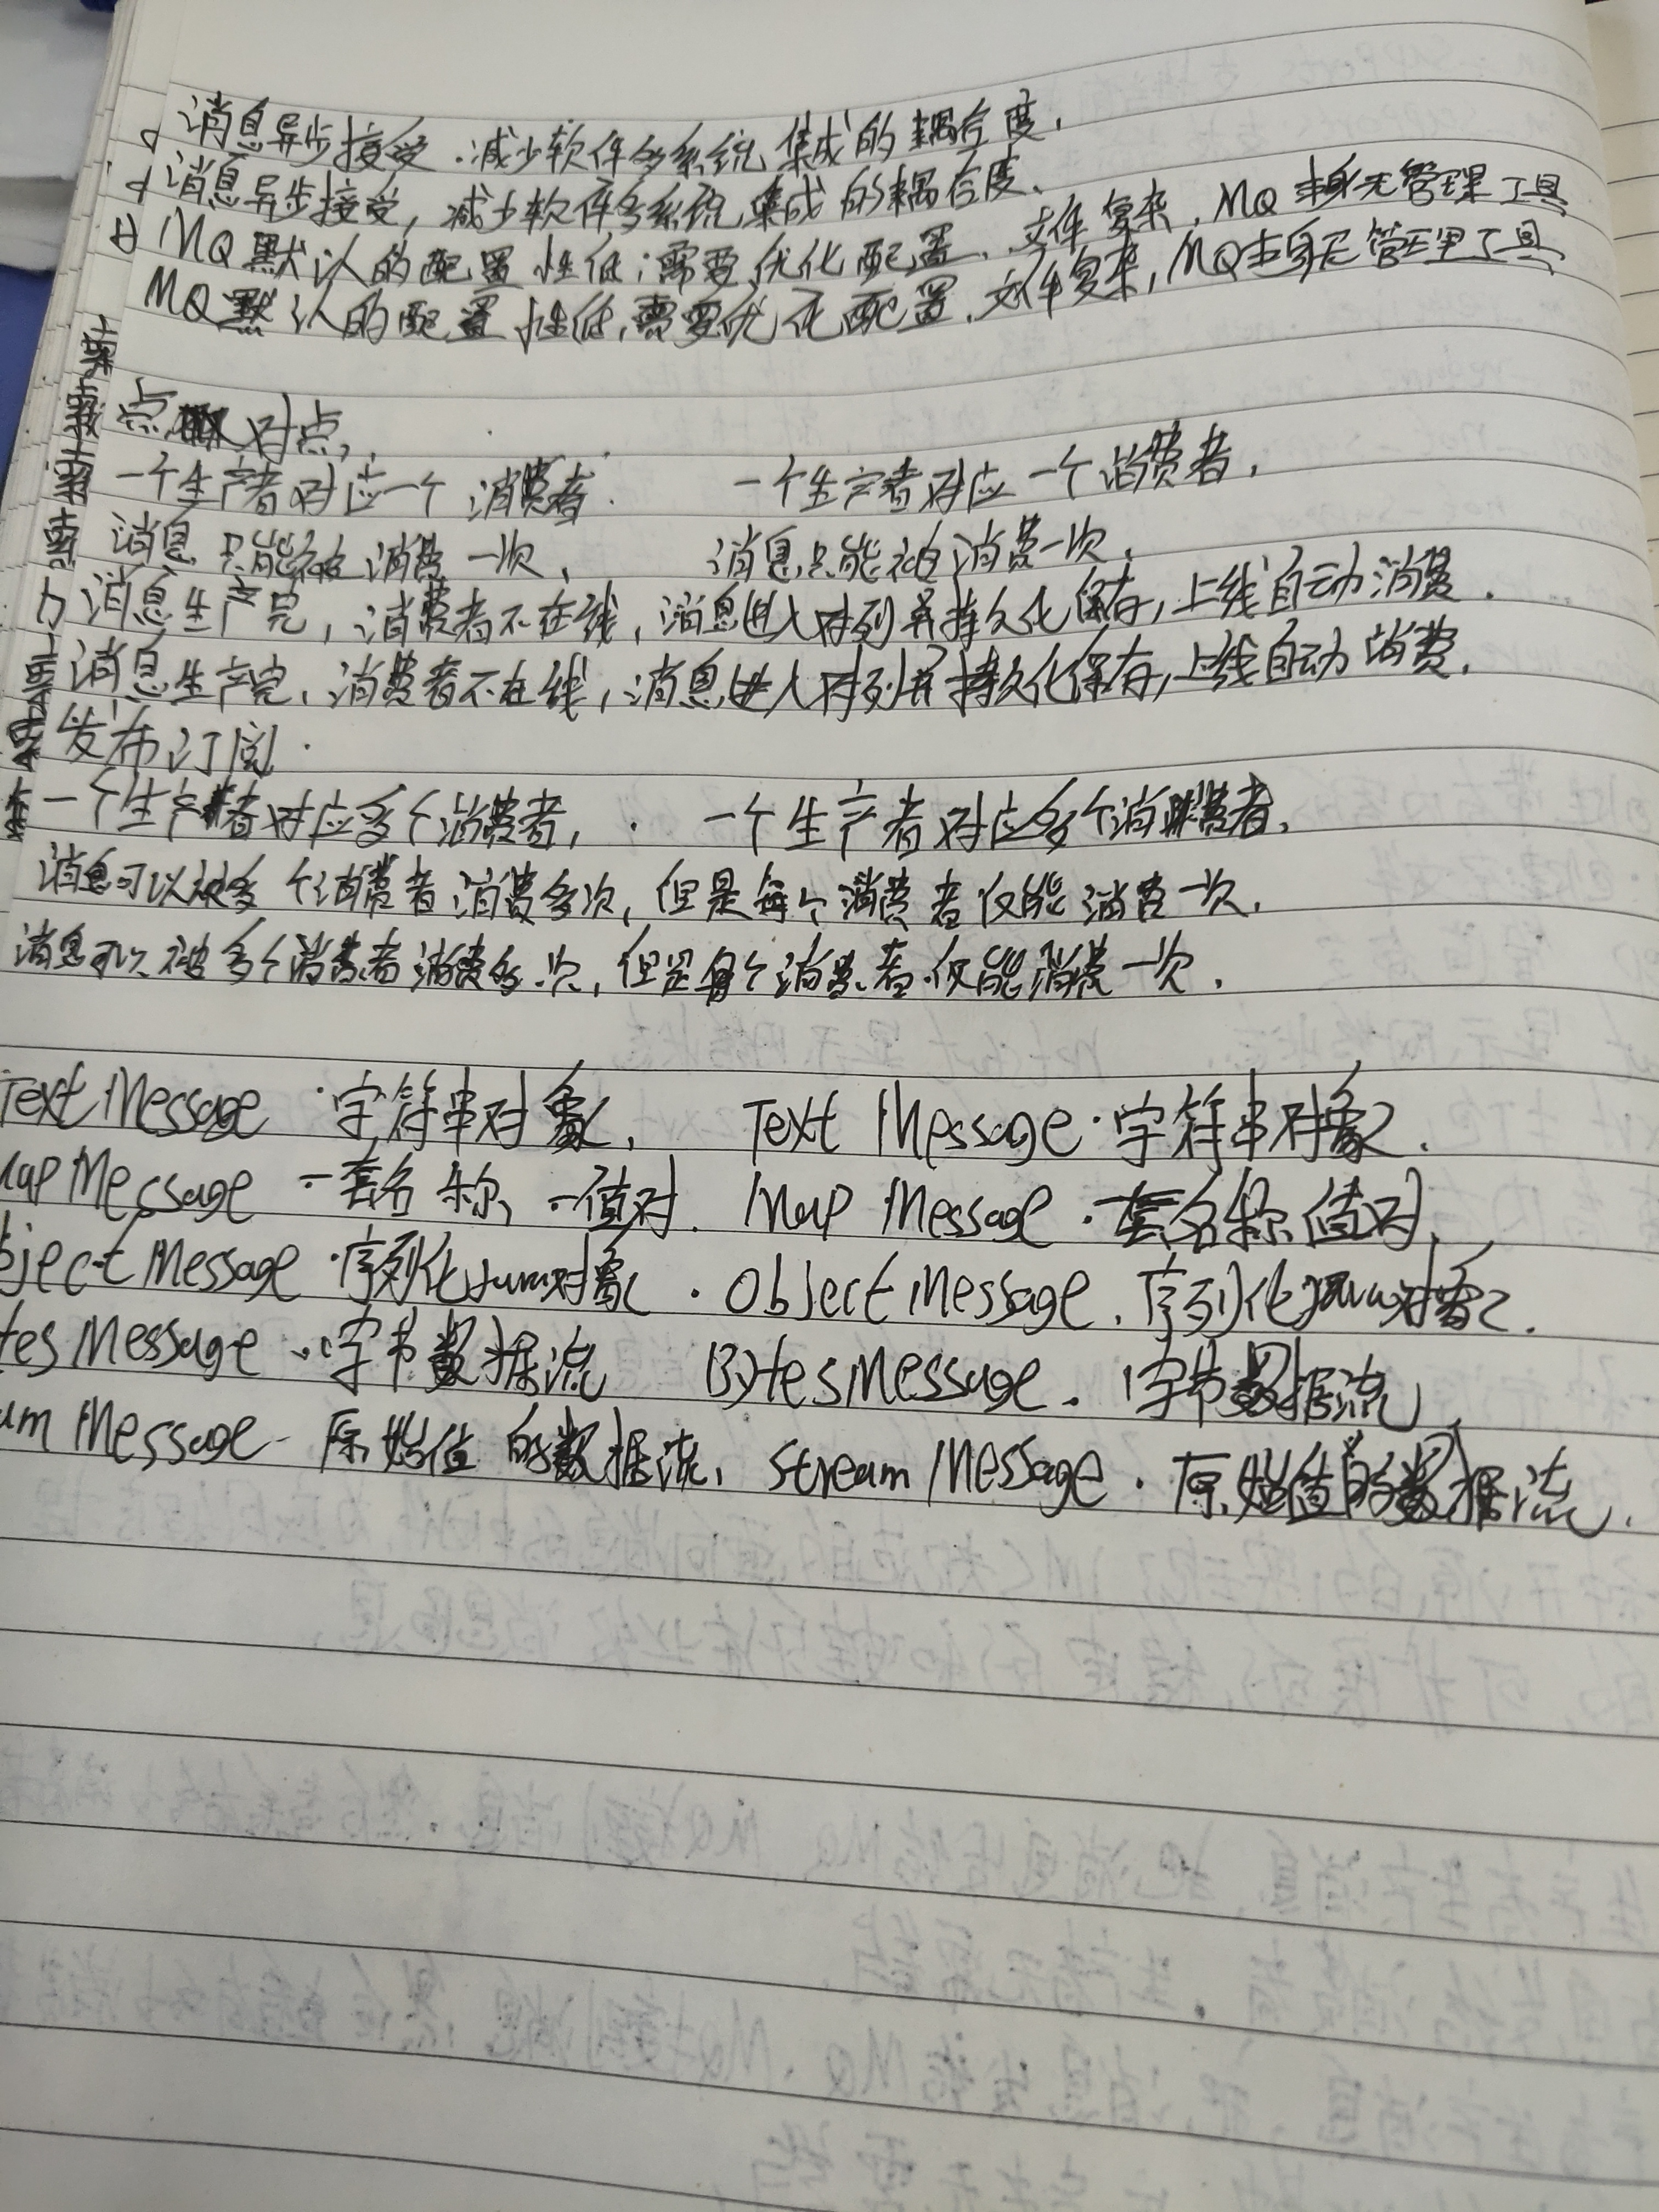 消息异步接受.减少软件多系统集成的耦合度.
消息异步接受,减少软件多系统集成的耦合度.
MQ默认的配置性低,需要优化配置.文件复杂,MQ本身无管理工具
MQ默认的配置性低,需要优化配置.文件复杂,MQ本身无管理工具
点对点,
一个生产者对应一个消费者. 一个生产者对应一个消费者,
消息只能被消费一次, 消息只能被消费一次,
消息生产完,消费者不在线,消息进入队列并持久化保存,上线自动消费.
消息生产完,消费者不在线,消息进入队列并持久化保存,上线自动消费,
发布订阅.
一个生产者对应多个消费者, 一个生产者对应多个消费者,
消息可以被多个消费者消费多次,但是每个消费者仅能消费一次,
消息可以被多个消费者消费多次,但是每个消费者仅能消费一次,
Text Message·字符串对象, Text Message·字符串对象.
Map Message 一套名称·一值对. Map Message·一套名称值对,
bject Message·序列化Java对象·Object Message.序列化Java对象.
tes Message·字节数据流 Bytes Message.字节数据流,
am Message-原始值的数据流, Stream Message·原始值的数据流.